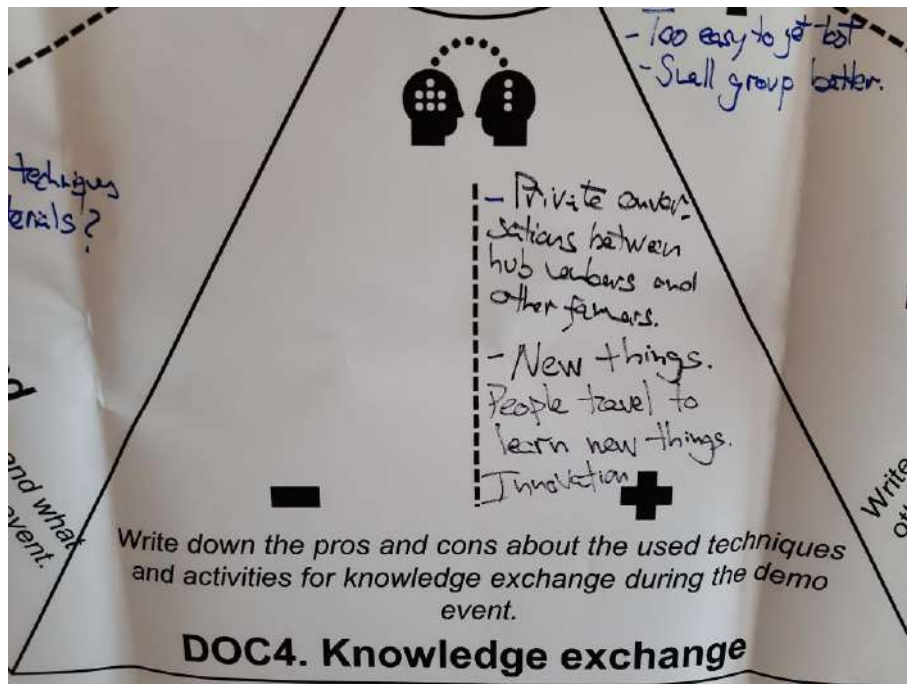 - Too easy to get lost
- Small group better.
techniques
erials?
- Private conver-
sations between
hub members and
other famars.
- New things.
People travel to
learn new things.
Innovation
d
and what
event.
Write
ot
Write down the pros and cons about the used techniques
and activities for knowledge exchange during the demo
event.
DOC4. Knowledge exchange